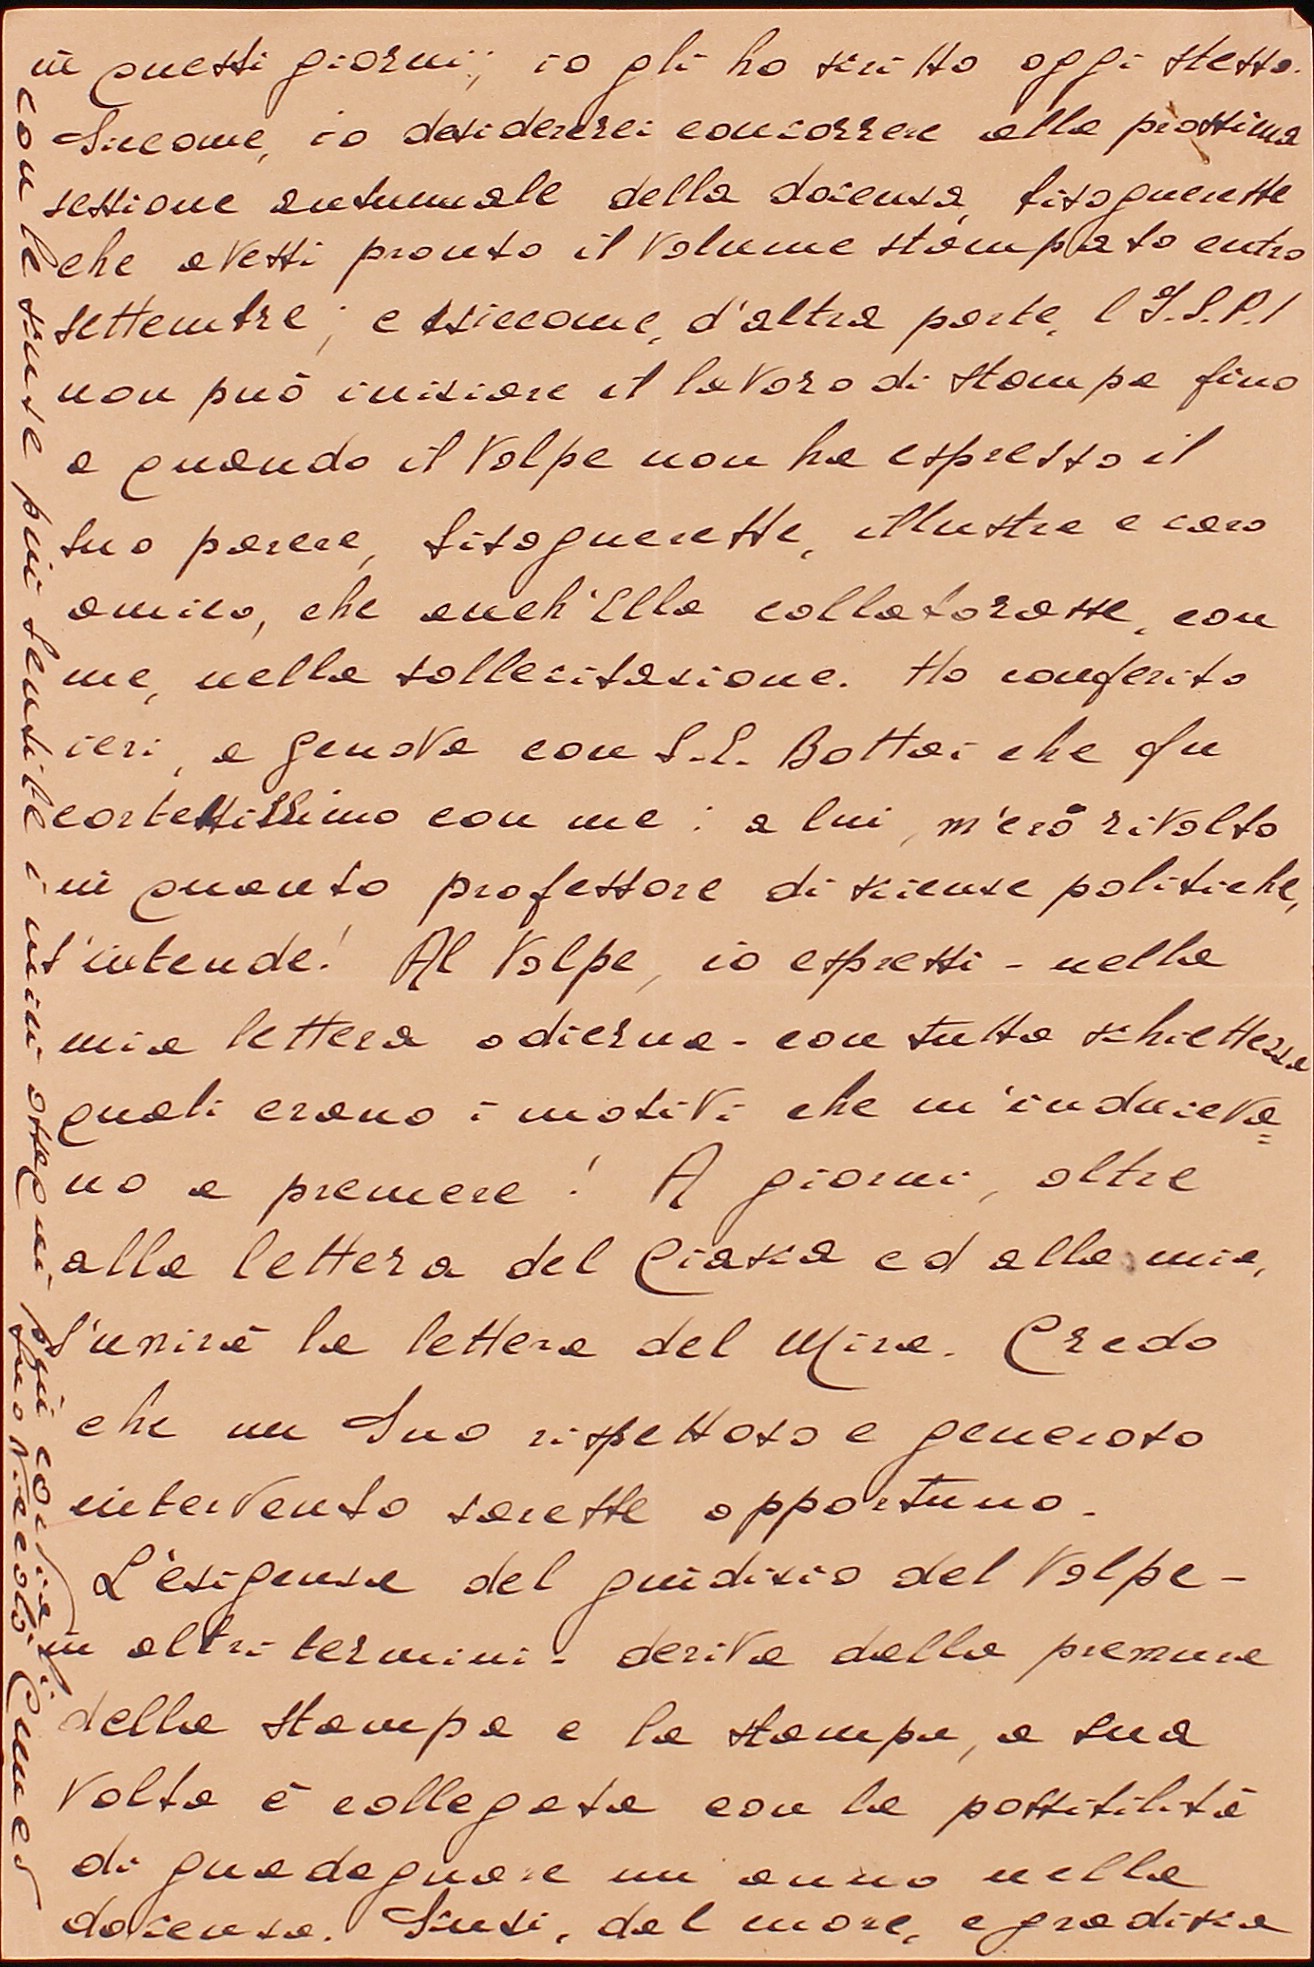 in questi giorni; io gli ho scritto oggi stesso.
Siccome, io desidererei concorrere alla prossima
sessione autunnale della docenza, bisognerebbe
che avessi pronto il volume stampato entro
settembre; e siccome, d'altra parte, l'I.S.P.I
non può iniziare il lavoro di stampa fino
a quando il Volpe non ha espresso il
suo parere, bisognerebbe, illustre e caro
amico, che anch'Ella collaborasse, con
me, nella sollecitazione. Ho conferito
ieri, a Genova con S.E. Bottai che fu
cortesissimo con me: a lui, m'ero rivolto
in quanto professore di scienze politiche,
s'intende! Al Volpe, io espressi - nella
mia lettera odierna - con tutta schiettezza
quali erano i motivi che m'induceva=
no a premere! A giorni, oltre
alla lettera del Ciasca ed alla mia,
s'unirà la lettera del Mira. Credo
che un Suo rispettoso e generoso
intervento sarebbe opportuno.
L'esigenza del giudizio del Volpe -
in altri termini - deriva dalla premura
della stampa e la stampa, a sua
volta è collegata con la possibilità
di guadagnare un anno nella
docenza. Scusi, dal more, e gradisca
con le scuse più sentite i miei ossequi più cordiali
Suo Niccolò Cuneo